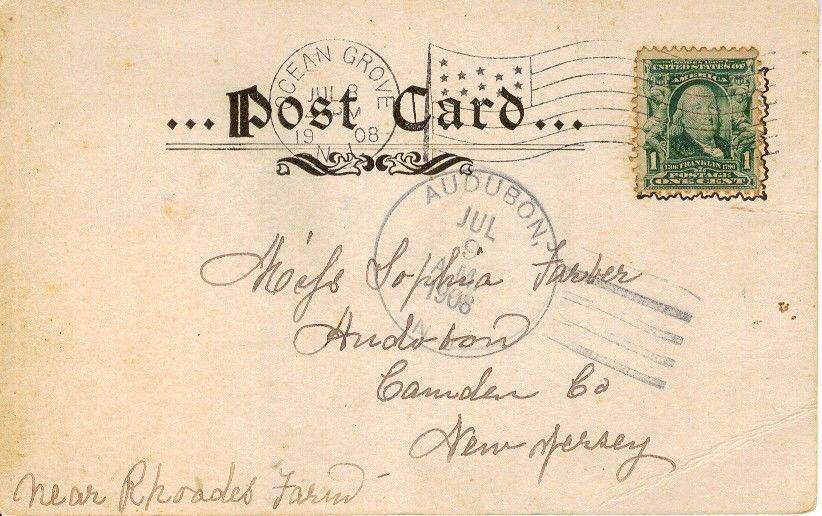 OCEAN GROVE
JUL 8
PM
1908
N.J.
...Post Card...
SERIES 1902
UNITED STATES OF
AMERICA
1 1
1706 FRANKLIN 1790
POSTAGE
ONE CENT
AUDUBON,
JUL
9
A.M.
1908
N.
Miss Sophia Farber
Audobon
Camden Co
New Jersey
near Rhoades Farm